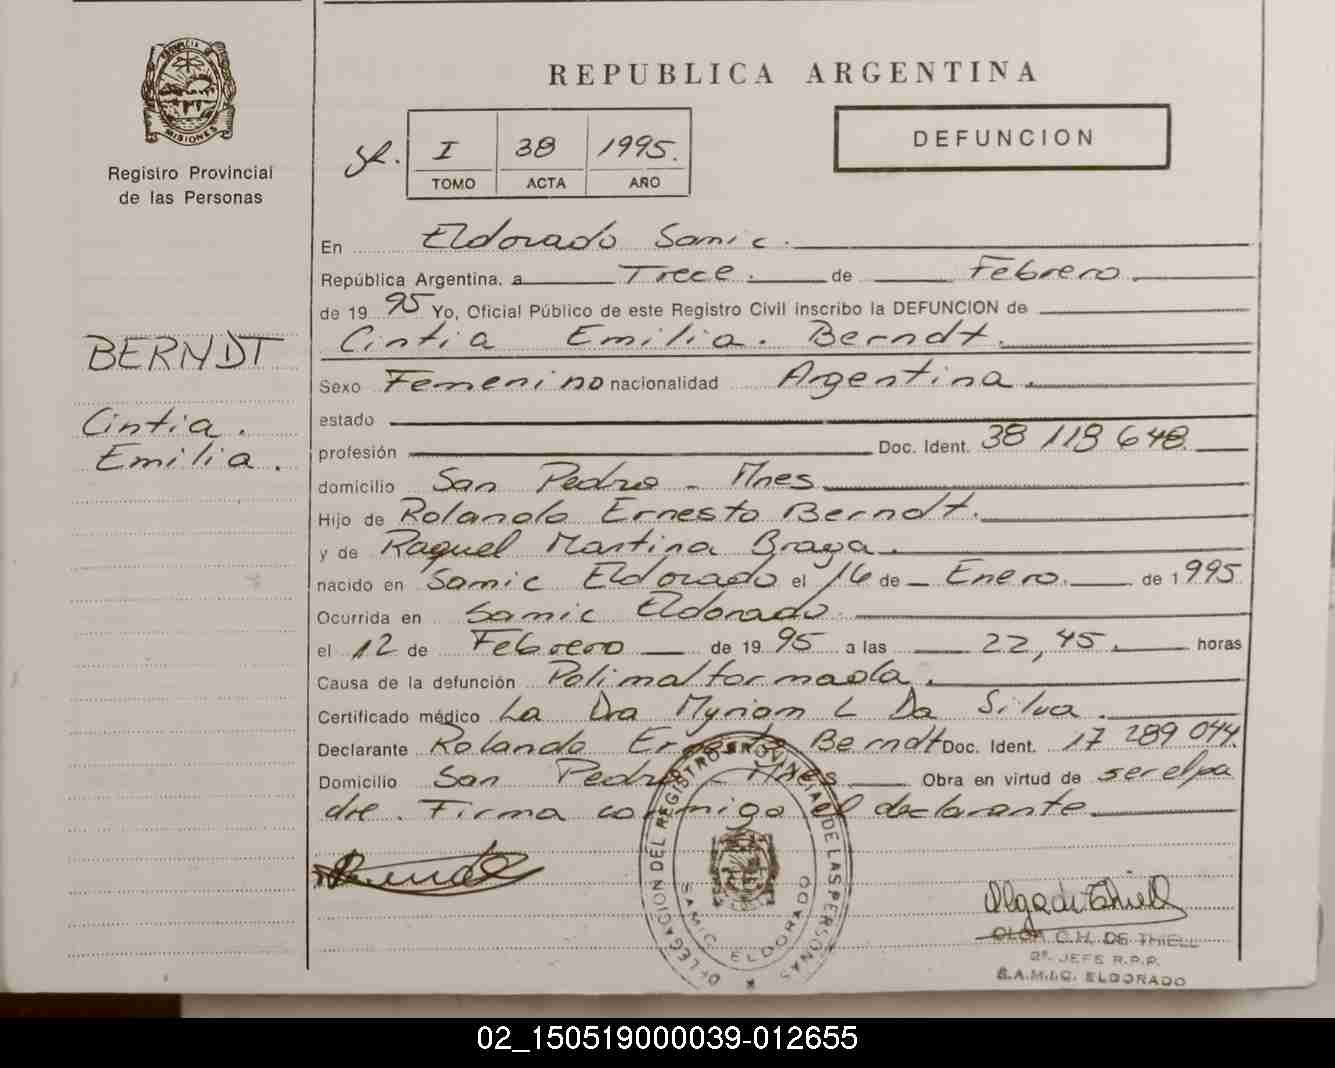 PROVINCIA DE
MISIONES
Registro Provincial
de las Personas
BERNDT
Cintia.
Emilia.
REPUBLICA ARGENTINA
I 38 1995.
TOMO ACTA AÑO
DEFUNCION
En Eldorado Samic.
República Argentina, a Trece. de Febrero.
de 19 95 Yo, Oficial Público de este Registro Civil inscribo la DEFUNCION de
Cintia Emilia. Berndt.
Sexo Femenino nacionalidad Argentina.
estado
profesión Doc. Ident. 38 118 648.
domicilio San Pedro - Mnes
Hijo de Rolando Ernesto Berndt.
y de Raquel Martina Braga.
nacido en Samic Eldorado el 16 de Enero. de 1995
Ocurrida en Samic Eldorado.
el 12 de Febrero de 19 95 a las 22,45. horas
Causa de la defunción Polimalformada.
Certificado médico La Dra Myriam L Da Silva.
Declarante Rolando Ernesto Berndt Doc. Ident. 17 289 044.
Domicilio San Pedro - Mnes Obra en virtud de ser el pa
dre. Firma conmigo el declarante.
DELEGACION DEL REGISTRO PROVINCIAL DE LAS PERSONAS
SAMIC. ELDORADO
Olga de Thiell
OLGA C.H. DE THIELL
2º. JEFE R.P.P.
S.A.M.I.C. ELDORADO
02_150519000039-012655